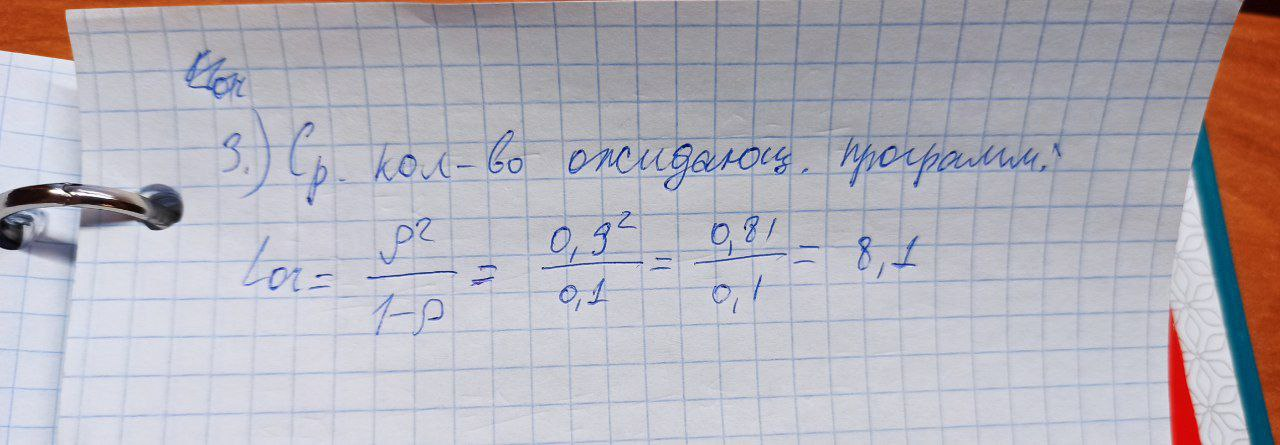 3.) Ср. кол-во ожидающ. программ:
Lоч = ρ²/(1-ρ) = 0,9²/0,1 = 0,81/0,1 = 8,1